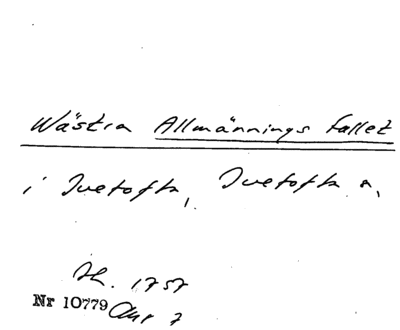 Wästra Allmännings fallet
i Ivetofta, Ivetofta s,
1757
Nr 10779